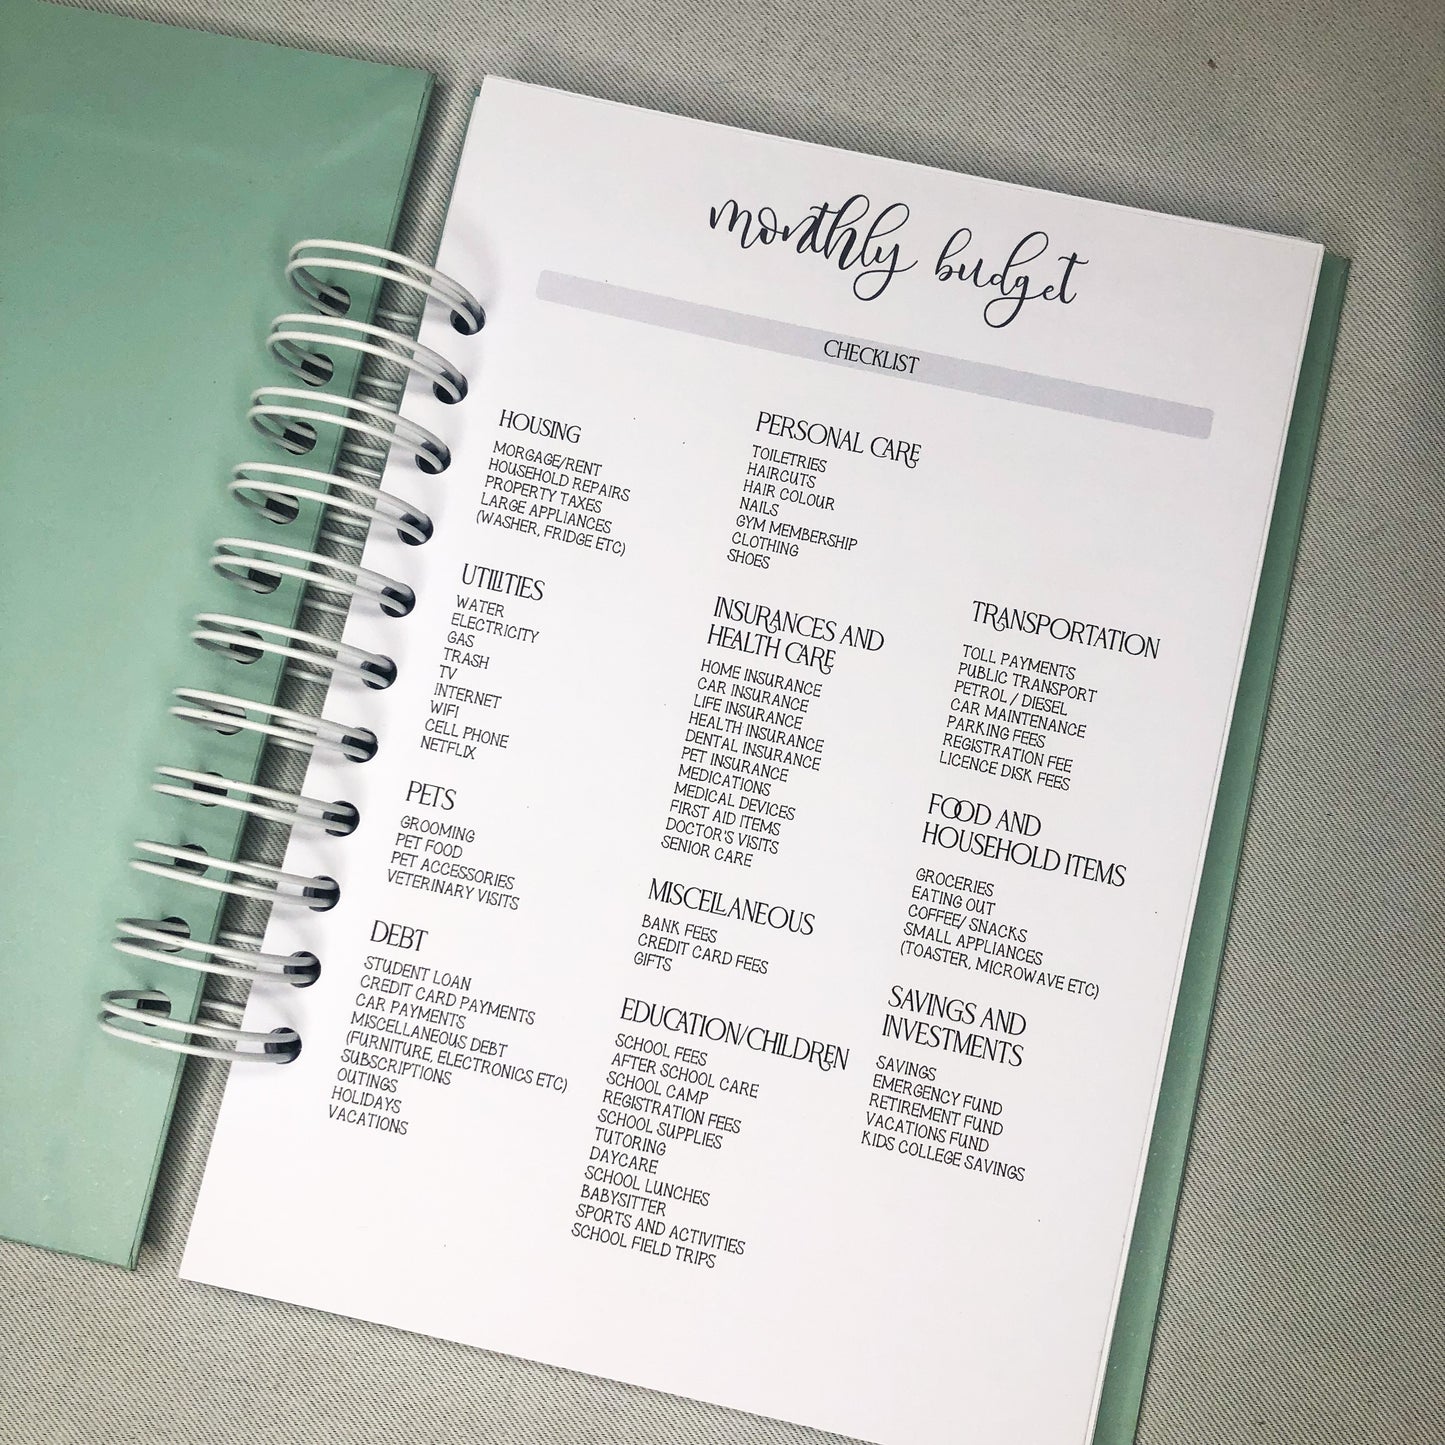 monthly budget
CHECKLIST
HOUSING
MORGAGE/RENT
HOUSEHOLD REPAIRS
PROPERTY TAXES
LARGE APPLIANCES
(WASHER, FRIDGE ETC)
UTILITIES
WATER
ELECTRICITY
GAS
TRASH
TV
INTERNET
WIFI
CELL PHONE
NETFLIX
PETS
GROOMING
PET FOOD
PET ACCESSORIES
VETERINARY VISITS
DEBT
STUDENT LOAN
CREDIT CARD PAYMENTS
CAR PAYMENTS
MISCELLANEOUS DEBT
(FURNITURE, ELECTRONICS ETC)
SUBSCRIPTIONS
OUTINGS
HOLIDAYS
VACATIONS
PERSONAL CARE
TOILETRIES
HAIRCUTS
HAIR COLOUR
NAILS
GYM MEMBERSHIP
CLOTHING
SHOES
INSURANCES AND
HEALTH CARE
HOME INSURANCE
CAR INSURANCE
LIFE INSURANCE
HEALTH INSURANCE
DENTAL INSURANCE
PET INSURANCE
MEDICATIONS
MEDICAL DEVICES
FIRST AID ITEMS
DOCTOR'S VISITS
SENIOR CARE
MISCELLANEOUS
BANK FEES
CREDIT CARD FEES
GIFTS
EDUCATION/CHILDREN
SCHOOL FEES
AFTER SCHOOL CARE
SCHOOL CAMP
REGISTRATION FEES
SCHOOL SUPPLIES
TUTORING
DAYCARE
SCHOOL LUNCHES
BABYSITTER
SPORTS AND ACTIVITIES
SCHOOL FIELD TRIPS
TRANSPORTATION
TOLL PAYMENTS
PUBLIC TRANSPORT
PETROL / DIESEL
CAR MAINTENANCE
PARKING FEES
REGISTRATION FEE
LICENCE DISK FEES
FOOD AND
HOUSEHOLD ITEMS
GROCERIES
EATING OUT
COFFEE/ SNACKS
SMALL APPLIANCES
(TOASTER, MICROWAVE ETC)
SAVINGS AND
INVESTMENTS
SAVINGS
EMERGENCY FUND
RETIREMENT FUND
VACATIONS FUND
KIDS COLLEGE SAVINGS